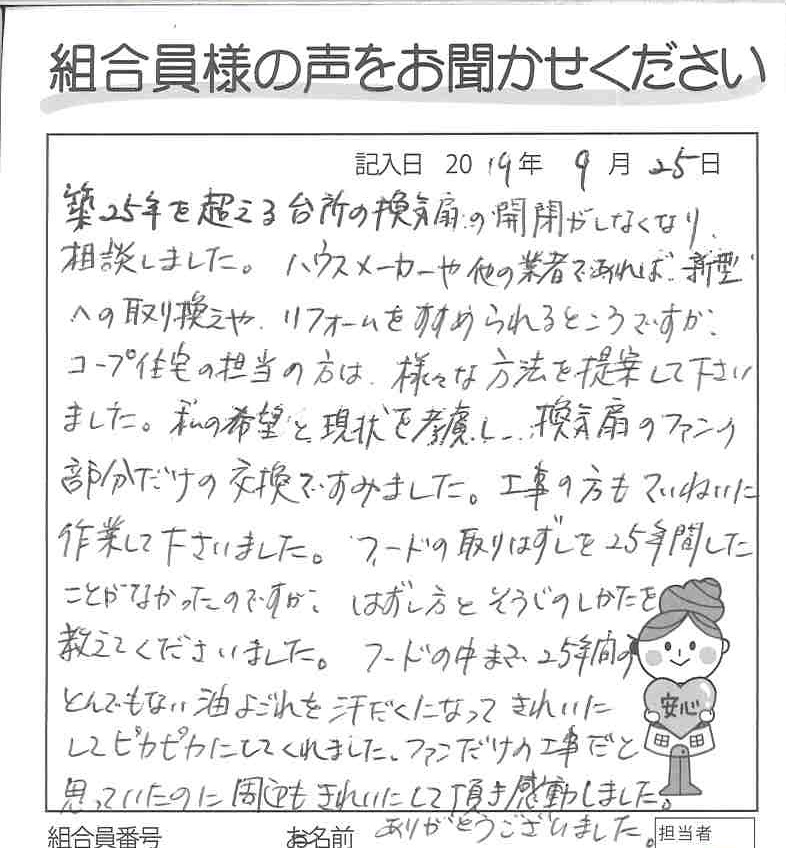 組合員様の声をお聞かせください
記入日 2019年 9月 25日
築25年を超える台所の換気扇の開閉がしなくなり、
相談しました。ハウスメーカーや他の業者であれば、新型
への取り換えや、リフォームをすすめられるところですが、
コープ住宅の担当の方は、様々な方法を提案して下さい
ました。私の希望と現状を考慮し、換気扇のファンの
部分だけの交換ですみました。工事の方もていねいに
作業して下さいました。フードの取りはずしを25年間した
ことがなかったのですが、はずし方とそうじのしかたを
教えてくださいました。フードの中まで、25年間の
とんでもない油よごれを汗だくになってきれいに
してピカピカにしてくれました。ファンだけの工事だと
思っていたのに周辺もきれいにして頂き感動しました。
ありがとうございました。
安心
組合員番号 お名前 担当者